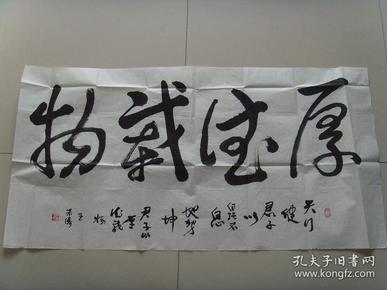 厚德载物
天行
健
君子
以
自强不
息
地势
坤
君子以
厚
德载
物
孔夫子旧书网